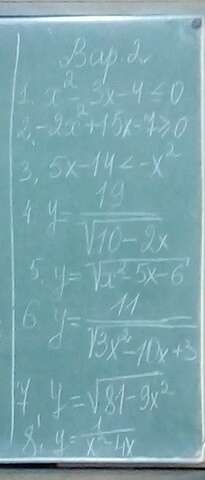 Вар. 2
1. x² - 3x - 4 ≤ 0
2. -2x² + 15x - 7 ≥ 0
3. 5x - 14 < -x²
4. y = 19/√(10 - 2x)
5. y = √(x² - 5x - 6)
6. y = 11/√(3x² - 10x + 3)
7. y = √(81 - 9x²)
8. y = 1/(x² - 4x)